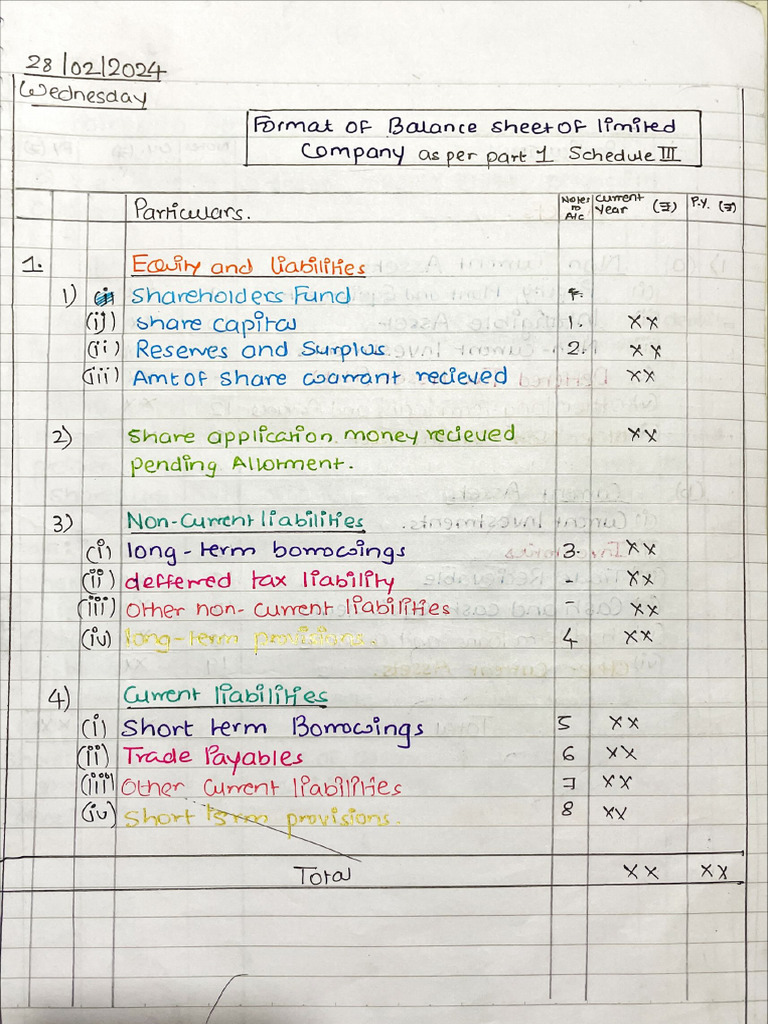 28/02/2024
Wednesday
Format of Balance sheet of limited
Company as per part 1 Schedule III
Particulars. Notes to A/c Current Year (₹) P.Y. (₹)
1. Equity and liabilities
1) Shareholders Fund
(i) share capital 1. XX
(ii) Reserves and Surplus 2. XX
(iii) Amt of share warrant recieved XX
2) Share application money recieved XX
pending Allotment.
3) Non-Current liabilities
(i) long-term borrowings 3. XX
(ii) defferred tax liability - XX
(iii) Other non-current liabilities - XX
(iv) long-term provisions. 4 XX
4) Current liabilities
(i) Short term Borrowings 5 XX
(ii) Trade Payables 6 XX
(iii) Other current liabilities 7 XX
(iv) Short term provisions. 8 XX
Total XX XX